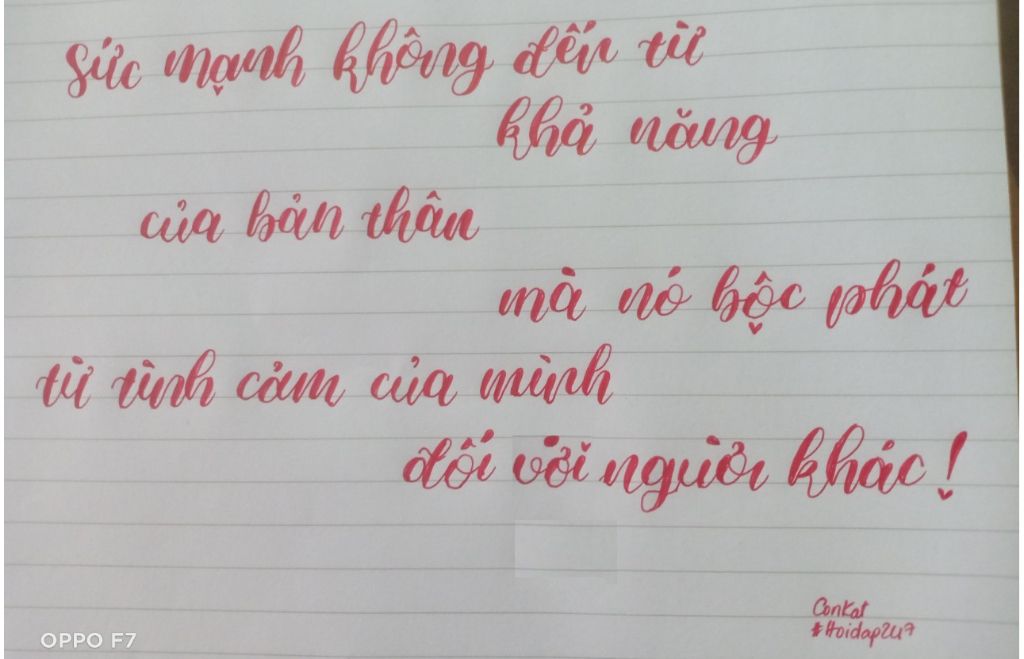 Sức mạnh không đến từ
khả năng
của bản thân
mà nó bộc phát
từ tình cảm của mình
đối với người khác!
ConKat
#Hoidap247
OPPO F7